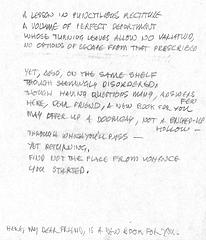 A LESSON IN PUNCTILIOUS RECTITUDE
A VOLUME OF PERFECT DEPORTMENT
WHOSE TURNING LEAVES ALLOW NO VARIATION,
NO OPTIONS OF ESCAPE FROM THAT PRESCRIBED
YET, ALSO, ON THE SAME SHELF
THOUGH SEEMINGLY DISORDERED,
THOUGH HAVING QUESTIONS MANY, ANSWERS FEW
HERE, DEAR FRIEND, A NEW BOOK FOR YOU
MAY OFFER UP A DOORWAY, NOT A
HOLLOW —
THROUGH WHICH YOU'LL PASS —
YET RETURNING,
FIND NOT THE PLACE FROM WHENCE
YOU STARTED.
HERE, MY DEAR FRIEND, IS A NEW BOOK FOR YOU.